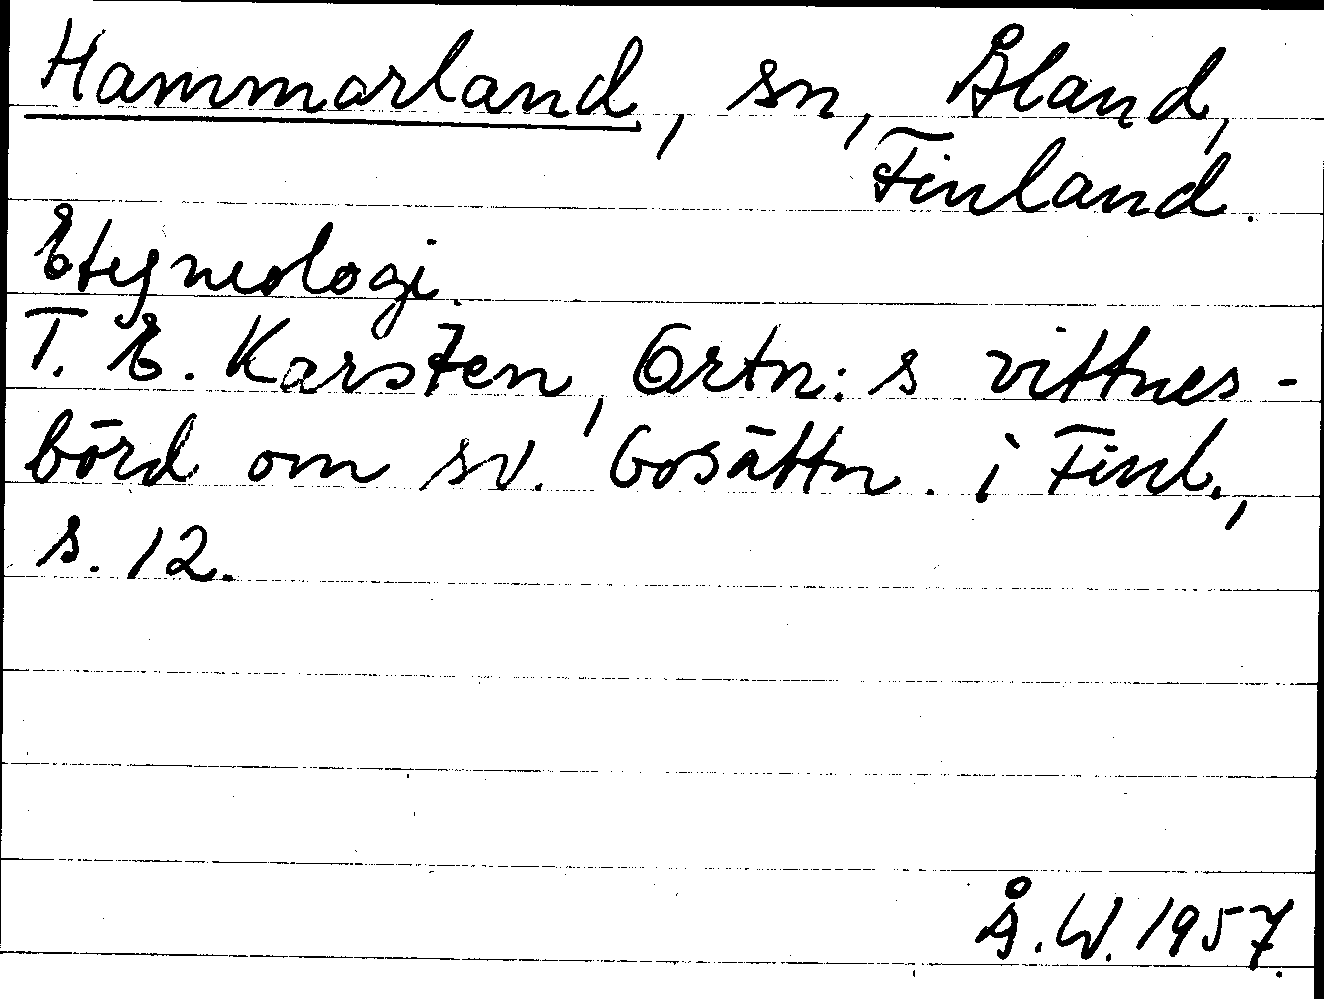 Hammarland, sn, Åland,
Finland.
Etymologi.
T. E. Karsten, Ortn:s vittnes-
börd om sv. bosättn. i Finl.,
s. 12.
Å. W. 1957.